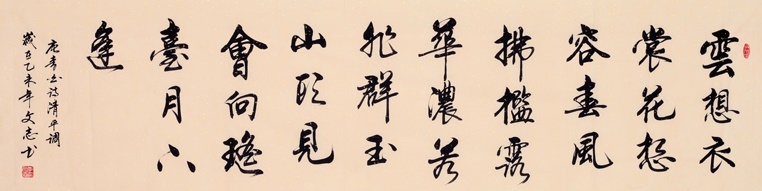 雲想衣
裳花想
容春風
拂檻露
華濃若
非群玉
山頭見
會向瑤
臺月下
逢
唐李白詩清平調
歲在乙未年文志書